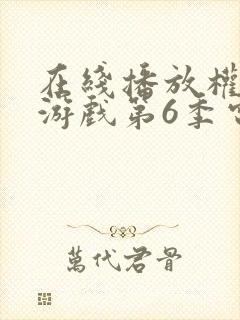 在綫播放權
游戲第6季
萬代君骨